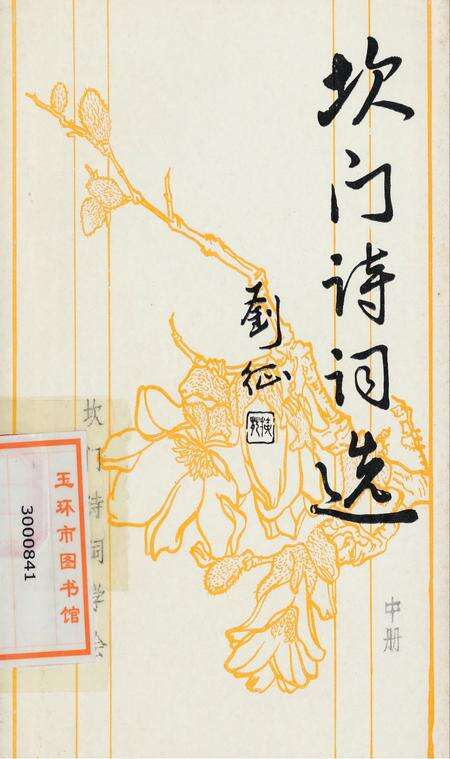 坎门诗词选
劉征
中册
坎门诗词学会
玉环市图书馆
3000841